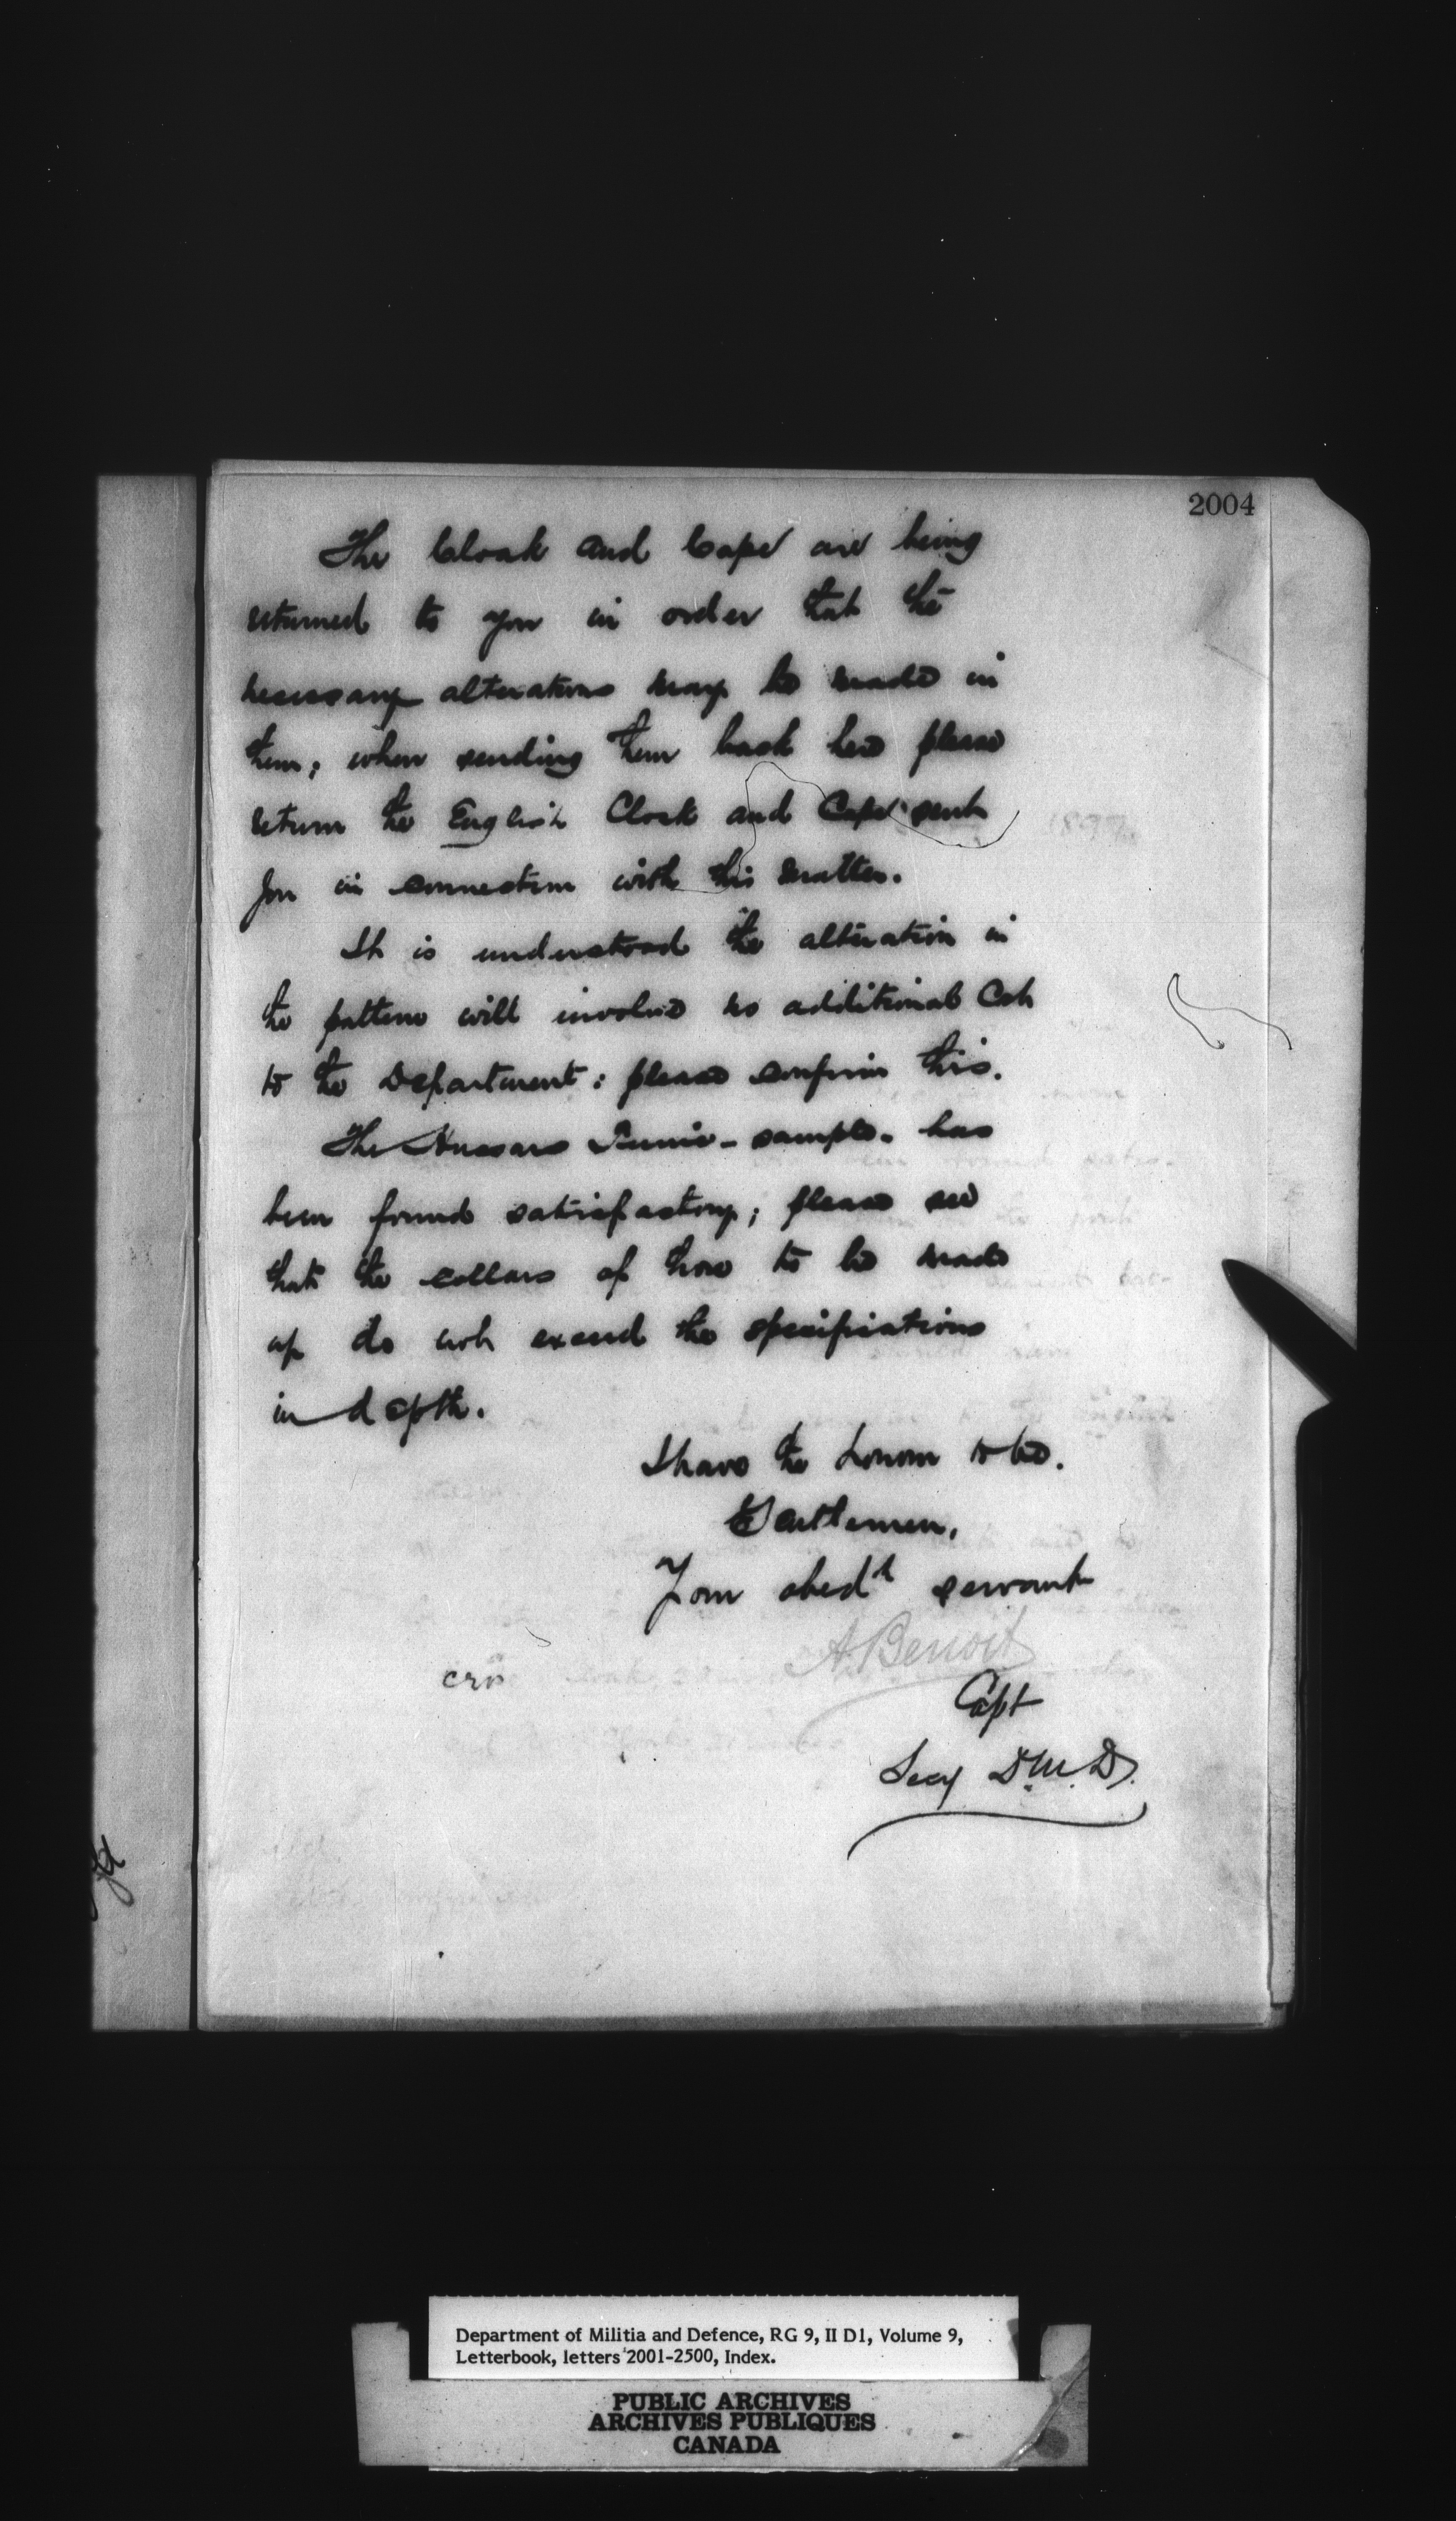 2004
The Cloak and Cape are being
returned to you in order that the
necessary alterations may be made in
them; when sending them back here please
return the English Cloak and Cape sent
you in connection with this matter.
It is understood the alteration in
the pattern will involve no additional Cost
to the Department: please confirm this.
The Hussars Tunic - sample - has
been found satisfactory; please see
that the collars of those to be made
up do not exceed the specifications
in depth.
I have the honour to be.
Gentlemen,
Your obedt servant
A. Benoit
Capt
Secy D.M.D.
Department of Militia and Defence, RG 9, II D1, Volume 9,
Letterbook, letters 2001-2500, Index.
PUBLIC ARCHIVES
ARCHIVES PUBLIQUES
CANADA